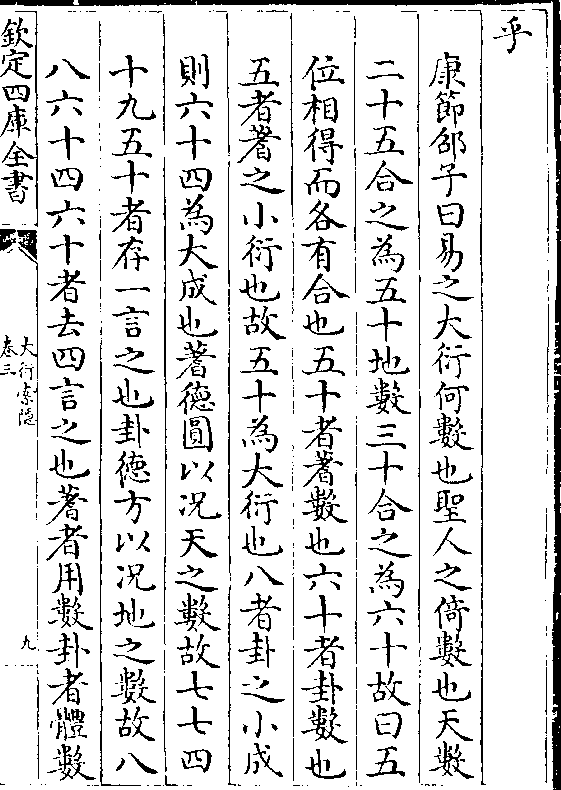 乎
康節邵子曰易之大衍何數也聖人之倚數也天數
二十五合之為五十地數三十合之為六十故曰五
位相得而各有合也五十者蓍數也六十者卦數也
五者蓍之小衍也故五十為大衍也八者卦之小成
則六十四為大成也蓍德圓以况天之數故七七四
十九五十者存一言之也卦德方以况地之數故八
八六十四六十者去四言之也蓍者用數卦者體數
欽定四庫全書
大衍索隱
卷三
九